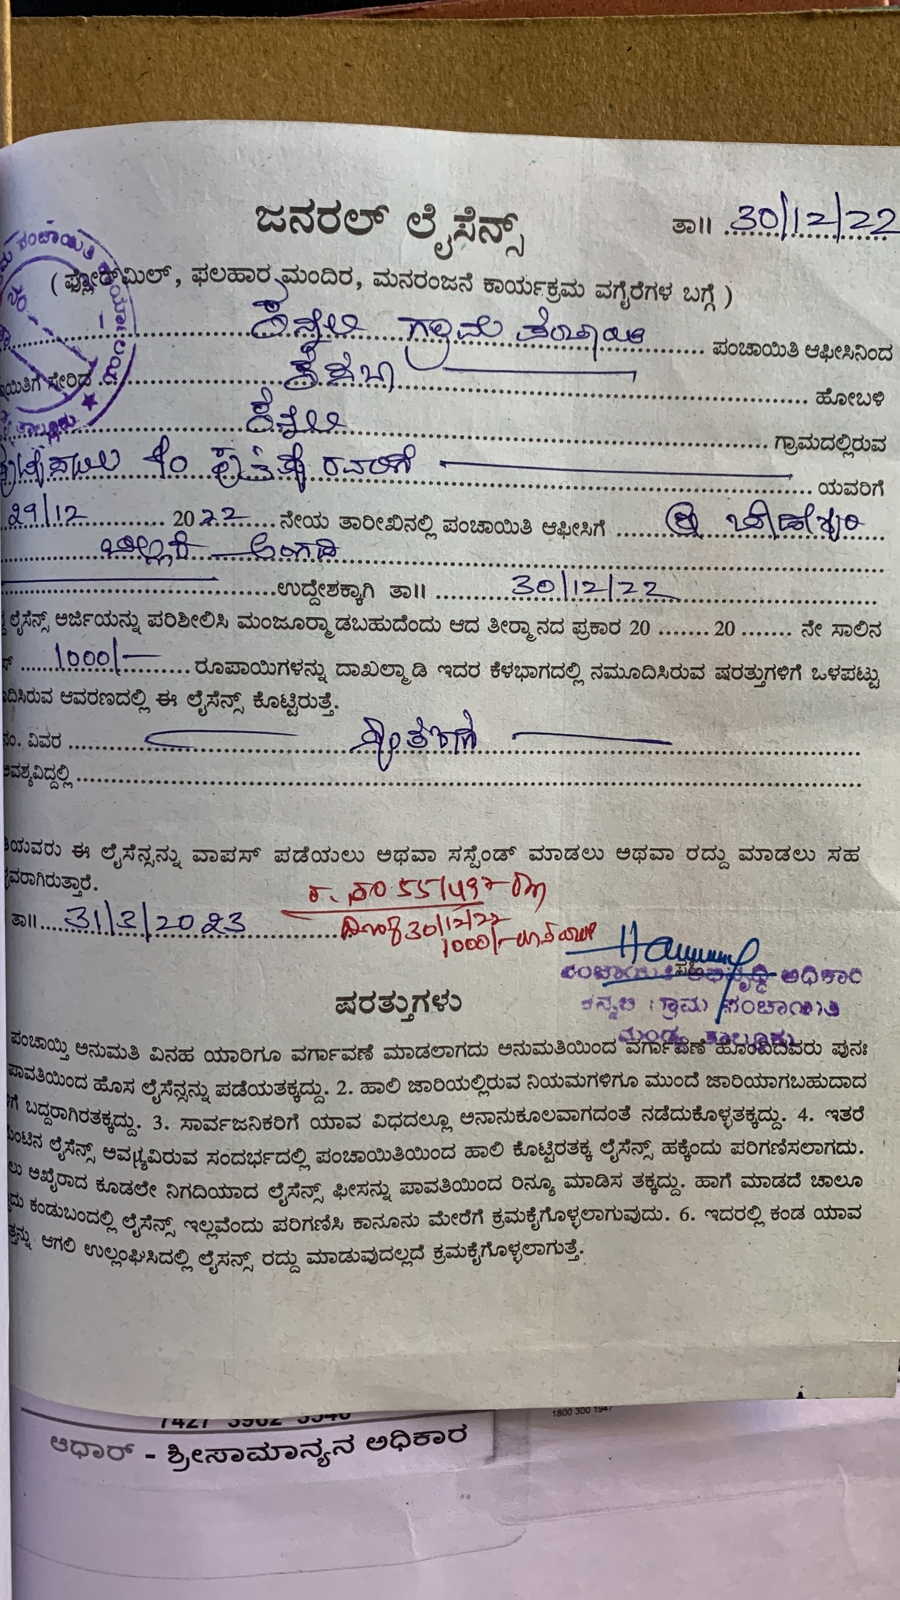 ಜನರಲ್ ಲೈಸೆನ್ಸ್
ತಾ॥ 30/12/22
( ಫ್ಲೋರ್‌ಮಿಲ್, ಫಲಹಾರ ಮಂದಿರ, ಮನರಂಜನೆ ಕಾರ್ಯಕ್ರಮ ವಗೈರೆಗಳ ಬಗ್ಗೆ )
ಗ್ರಾಮ ಪಂಚಾಯಿತಿ ಪಂಚಾಯಿತಿ ಆಫೀಸಿನಿಂದ
ಯಿತಿಗೆ ಸೇರಿದ ಹೋಬಳಿ
ಗ್ರಾಮದಲ್ಲಿರುವ
ಯವರಿಗೆ
29/12 2022 ನೇಯ ತಾರೀಖಿನಲ್ಲಿ ಪಂಚಾಯಿತಿ ಆಫೀಸಿಗೆ ಶ್ರೀ
ಅಂಗಡಿ
ಉದ್ದೇಶಕ್ಕಾಗಿ ತಾ॥ 30/12/22
ಲೈಸೆನ್ಸ್ ಅರ್ಜಿಯನ್ನು ಪರಿಶೀಲಿಸಿ ಮಂಜೂರ್‍ಮಾಡಬಹುದೆಂದು ಆದ ತೀರ್‍ಮಾನದ ಪ್ರಕಾರ 20 ....... 20 ....... ನೇ ಸಾಲಿನ
1000/- ರೂಪಾಯಿಗಳನ್ನು ದಾಖಲ್ಮಾಡಿ ಇದರ ಕೆಳಭಾಗದಲ್ಲಿ ನಮೂದಿಸಿರುವ ಷರತ್ತುಗಳಿಗೆ ಒಳಪಟ್ಟು
ದಿಸಿರುವ ಆವರಣದಲ್ಲಿ ಈ ಲೈಸೆನ್ಸ್ ಕೊಟ್ಟಿರುತ್ತೆ.
ನಂ. ವಿವರ
ಅವಶ್ಯವಿದ್ದಲ್ಲಿ
ಯವರು ಈ ಲೈಸೆನ್ಸನ್ನು ವಾಪಸ್ ಪಡೆಯಲು ಅಥವಾ ಸಸ್ಪೆಂಡ್ ಮಾಡಲು ಅಥವಾ ರದ್ದು ಮಾಡಲು ಸಹ
ವರಾಗಿರುತ್ತಾರೆ.
ತಾ॥ 31/3/2023
30/12/22
1000/-
ಪಂಚಾಯಿತಿ ಅಭಿವೃದ್ಧಿ ಅಧಿಕಾರಿ
ಗ್ರಾಮ ಪಂಚಾಯಿತಿ
ಮಂಡ್ಯ ತಾಲ್ಲೂಕು
ಷರತ್ತುಗಳು
ಪಂಚಾಯ್ತಿ ಅನುಮತಿ ವಿನಹ ಯಾರಿಗೂ ವರ್ಗಾವಣೆ ಮಾಡಲಾಗದು ಅನುಮತಿಯಿಂದ ವರ್ಗಾವಣೆ ಹೊಂದಿದವರು ಪುನಃ
ಪಾವತಿಯಿಂದ ಹೊಸ ಲೈಸೆನ್ಸನ್ನು ಪಡೆಯತಕ್ಕದ್ದು. 2. ಹಾಲಿ ಜಾರಿಯಲ್ಲಿರುವ ನಿಯಮಗಳಿಗೂ ಮುಂದೆ ಜಾರಿಯಾಗಬಹುದಾದ
ಗೆ ಬದ್ದರಾಗಿರತಕ್ಕದ್ದು. 3. ಸಾರ್ವಜನಿಕರಿಗೆ ಯಾವ ವಿಧದಲ್ಲೂ ಅನಾನುಕೂಲವಾಗದಂತೆ ನಡೆದುಕೊಳ್ಳತಕ್ಕದ್ದು. 4. ಇತರೆ
ಲೈಸೆನ್ಸ್ ಅವಶ್ಯವಿರುವ ಸಂದರ್ಭದಲ್ಲಿ ಪಂಚಾಯಿತಿಯಿಂದ ಹಾಲಿ ಕೊಟ್ಟಿರತಕ್ಕ ಲೈಸೆನ್ಸ್ ಹಕ್ಕೆಂದು ಪರಿಗಣಿಸಲಾಗದು.
ಲು ಅಖೈರಾದ ಕೂಡಲೇ ನಿಗದಿಯಾದ ಲೈಸೆನ್ಸ್ ಫೀಸನ್ನು ಪಾವತಿಯಿಂದ ರಿನ್ಯೂ ಮಾಡಿಸ ತಕ್ಕದ್ದು. ಹಾಗೆ ಮಾಡದೆ ಚಾಲೂ
ದು ಕಂಡುಬಂದಲ್ಲಿ ಲೈಸೆನ್ಸ್ ಇಲ್ಲವೆಂದು ಪರಿಗಣಿಸಿ ಕಾನೂನು ಮೇರೆಗೆ ಕ್ರಮಕೈಗೊಳ್ಳಲಾಗುವುದು. 6. ಇದರಲ್ಲಿ ಕಂಡ ಯಾವ
ತ್ತನ್ನು ಆಗಲಿ ಉಲ್ಲಂಘಿಸಿದಲ್ಲಿ ಲೈಸನ್ಸ್ ರದ್ದು ಮಾಡುವುದಲ್ಲದೆ ಕ್ರಮಕೈಗೊಳ್ಳಲಾಗುತ್ತೆ.
1800 300 1947
ಆಧಾರ್ - ಶ್ರೀಸಾಮಾನ್ಯನ ಅಧಿಕಾರ